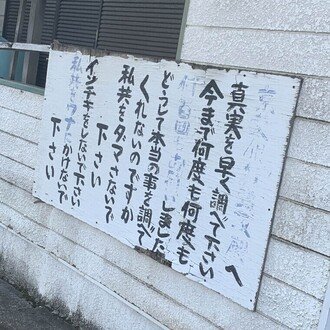 へ
真実を早く調べて下さい
今まで何度も何度も
しました
どうして本当の事を調べて
くれないのですか
私共をダマさないで
下さい
インチキをしないで下さい
私共をワナにかけないで
下さい